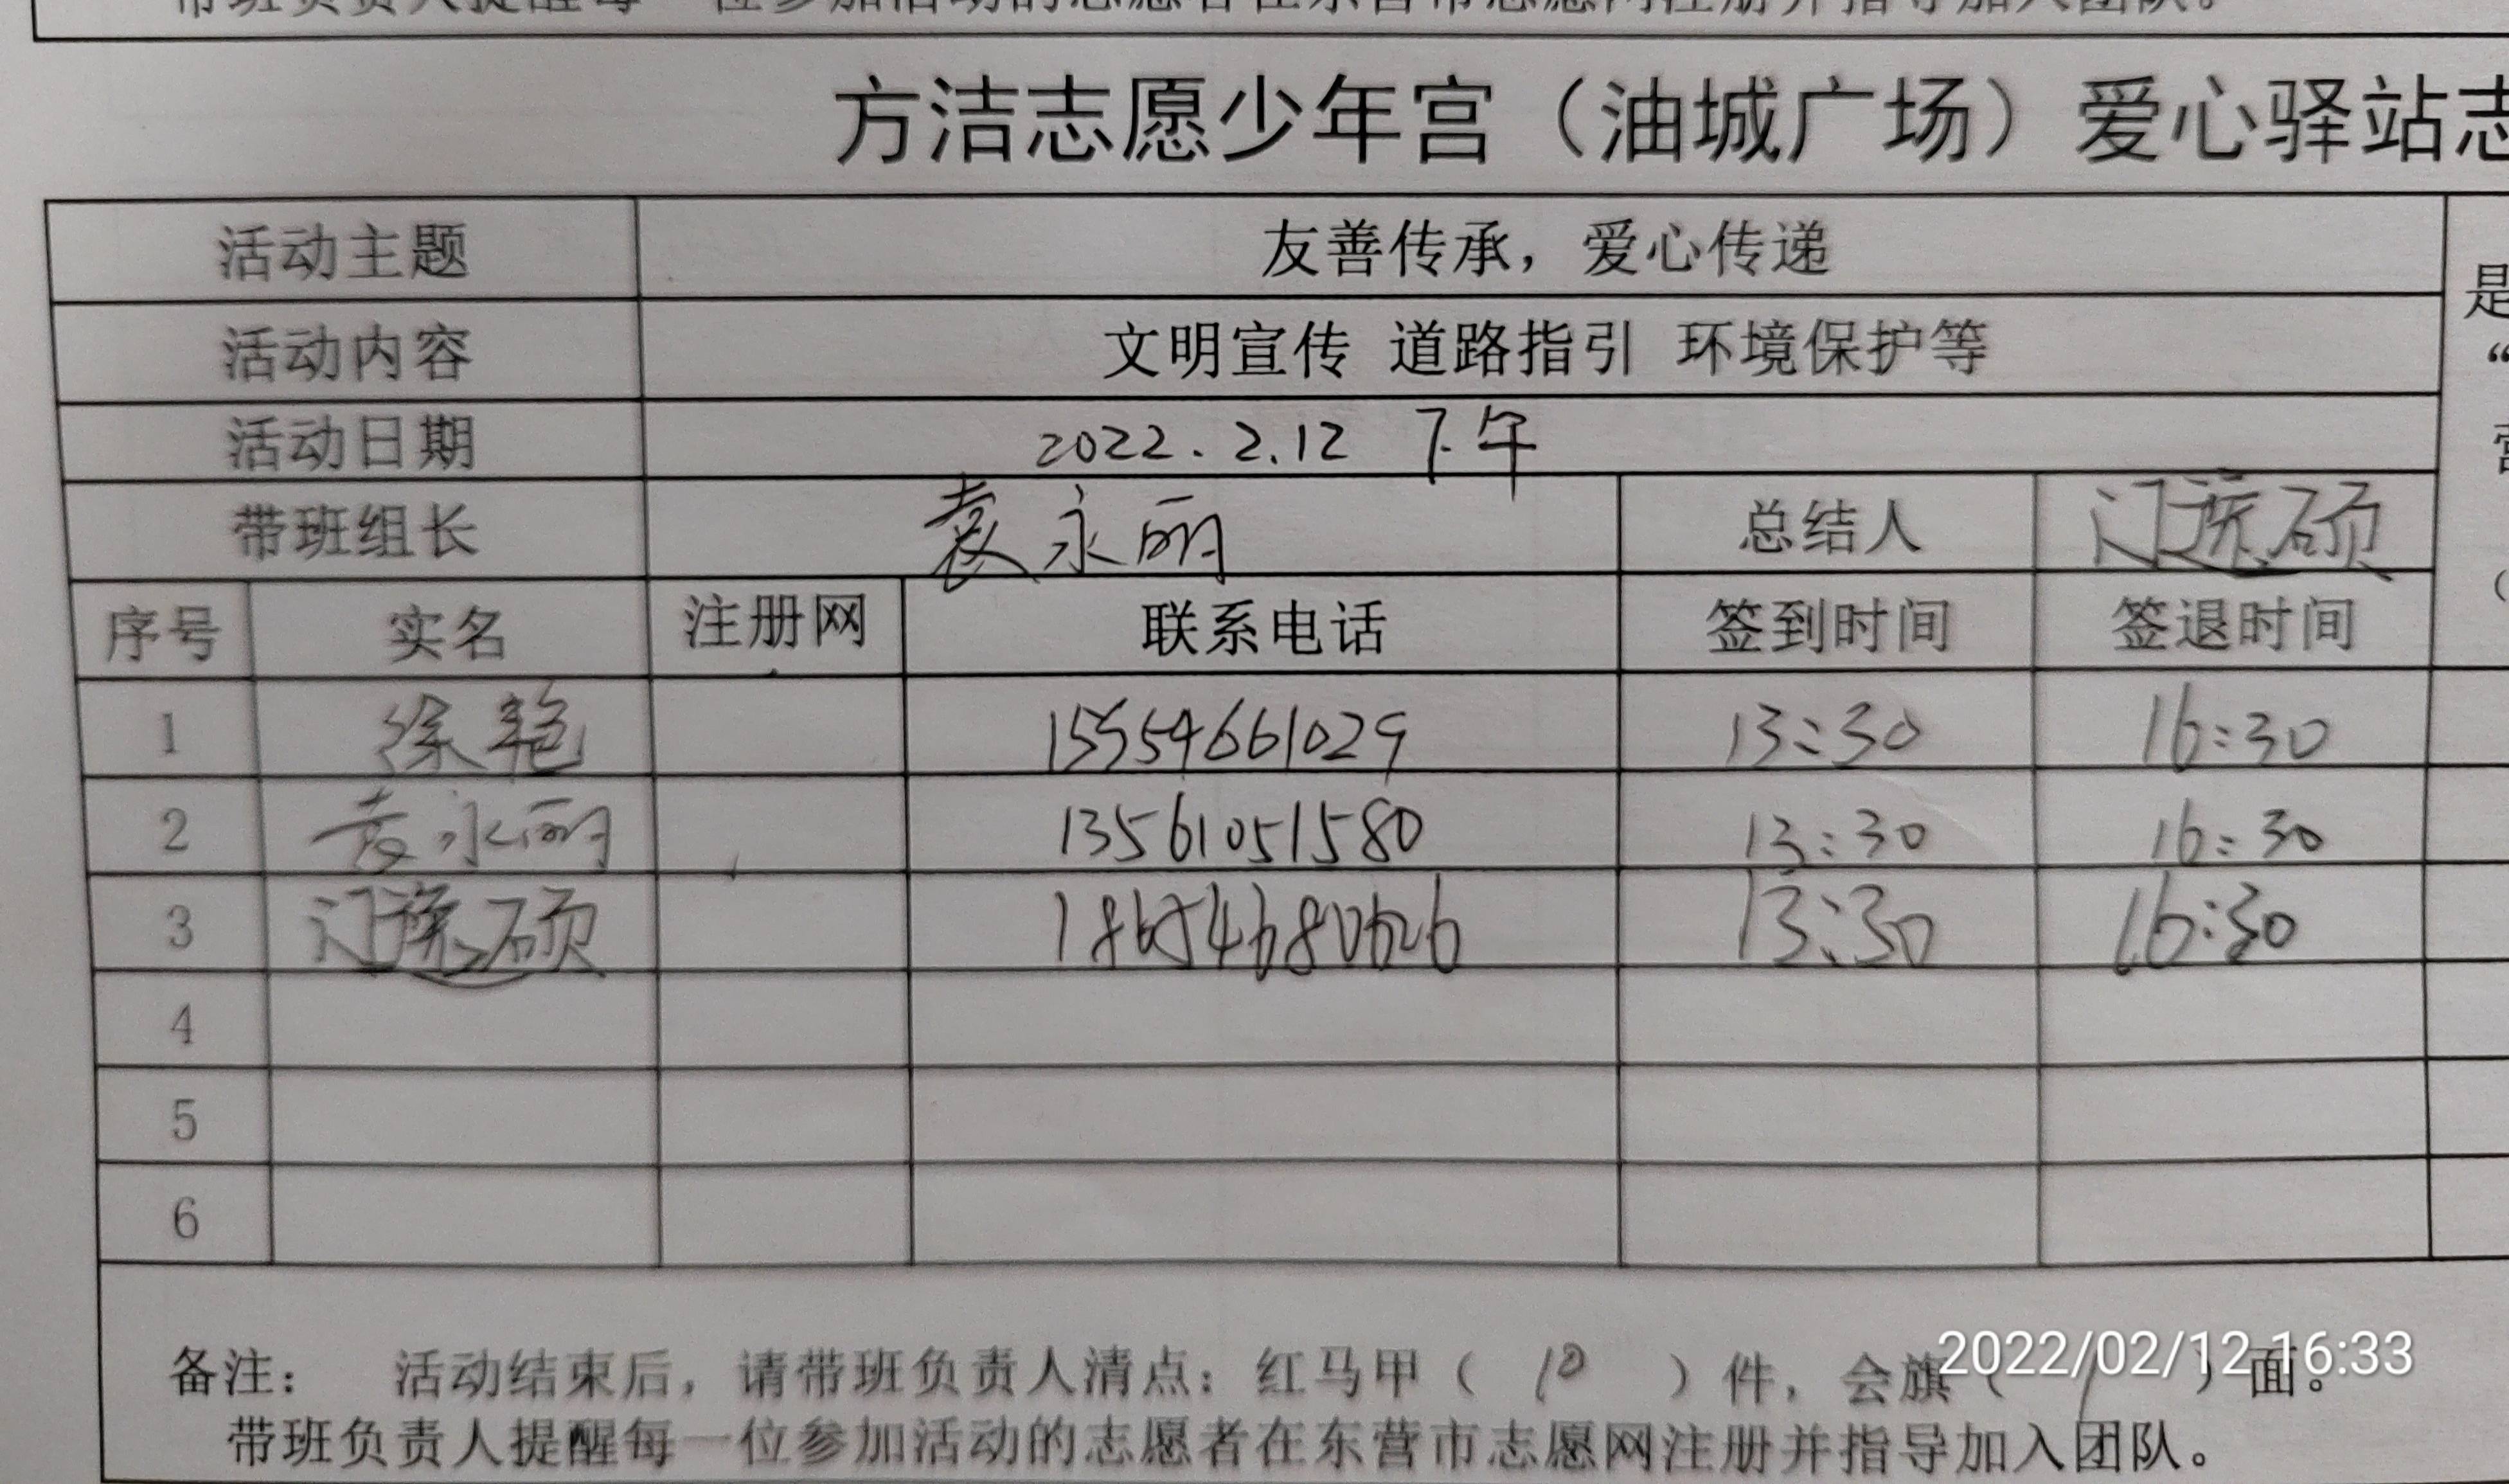 带班负责人提醒每一位参加活动的志愿者在东营市志愿网注册并指导加入团队。
方洁志愿少年宫（油城广场）爱心驿站志
活动主题 友善传承，爱心传递
是
活动内容 文明宣传 道路指引 环境保护等
“
活动日期 2022.2.12 下午
营
带班组长 袁永丽 总结人 门 硕
（
序号 实名 注册网 联系电话 签到时间 签退时间
1 徐艳 15554661029 13:30 16:30
2 袁永丽 13561051580 13:30 16:30
3 门 硕 13:30 16:30
4
5
6
备注： 活动结束后，请带班负责人清点：红马甲（ 10 ）件，会旗（ 1 ）面。
2022/02/12 16:33
带班负责人提醒每一位参加活动的志愿者在东营市志愿网注册并指导加入团队。